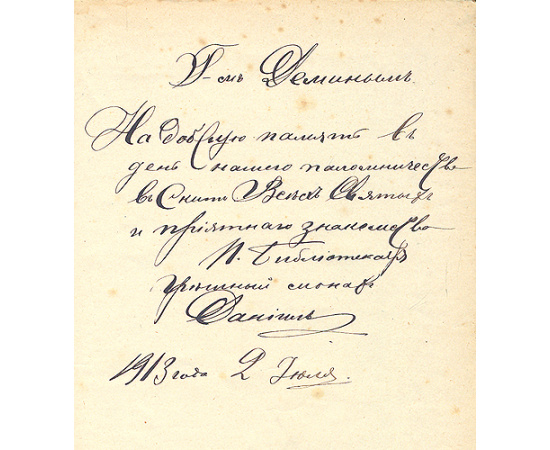 Г-смъ Деминымъ.
На добрую память въ
день нашего паломничества
въ Скитъ Всехъ Святыхъ
и пріятнаго знакомства
П. Библіотекарь
грешный монахъ
Даніилъ
1913 года 2 Іюля.